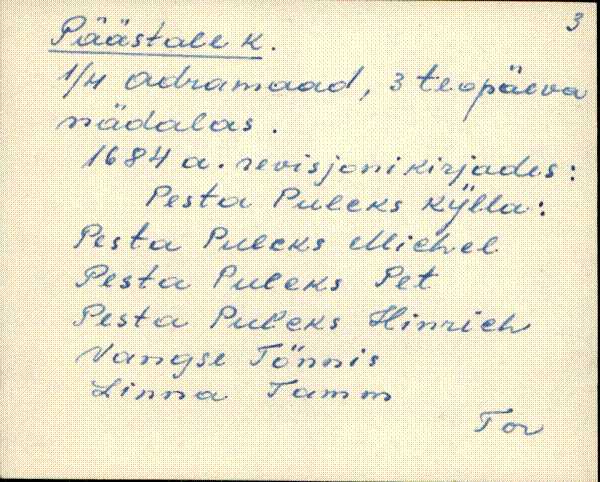 3
Päästale k.
1/4 adramaad, 3 teopäeva
nädalas.
1684 a. revisjonikirjades:
Pesta Puleks Kÿlla:
Pesta Puleks Michel
Pesta Puleks Pet
Pesta Puleks Hinrich
Vangse Tönnis
Linna Tamm
Tor